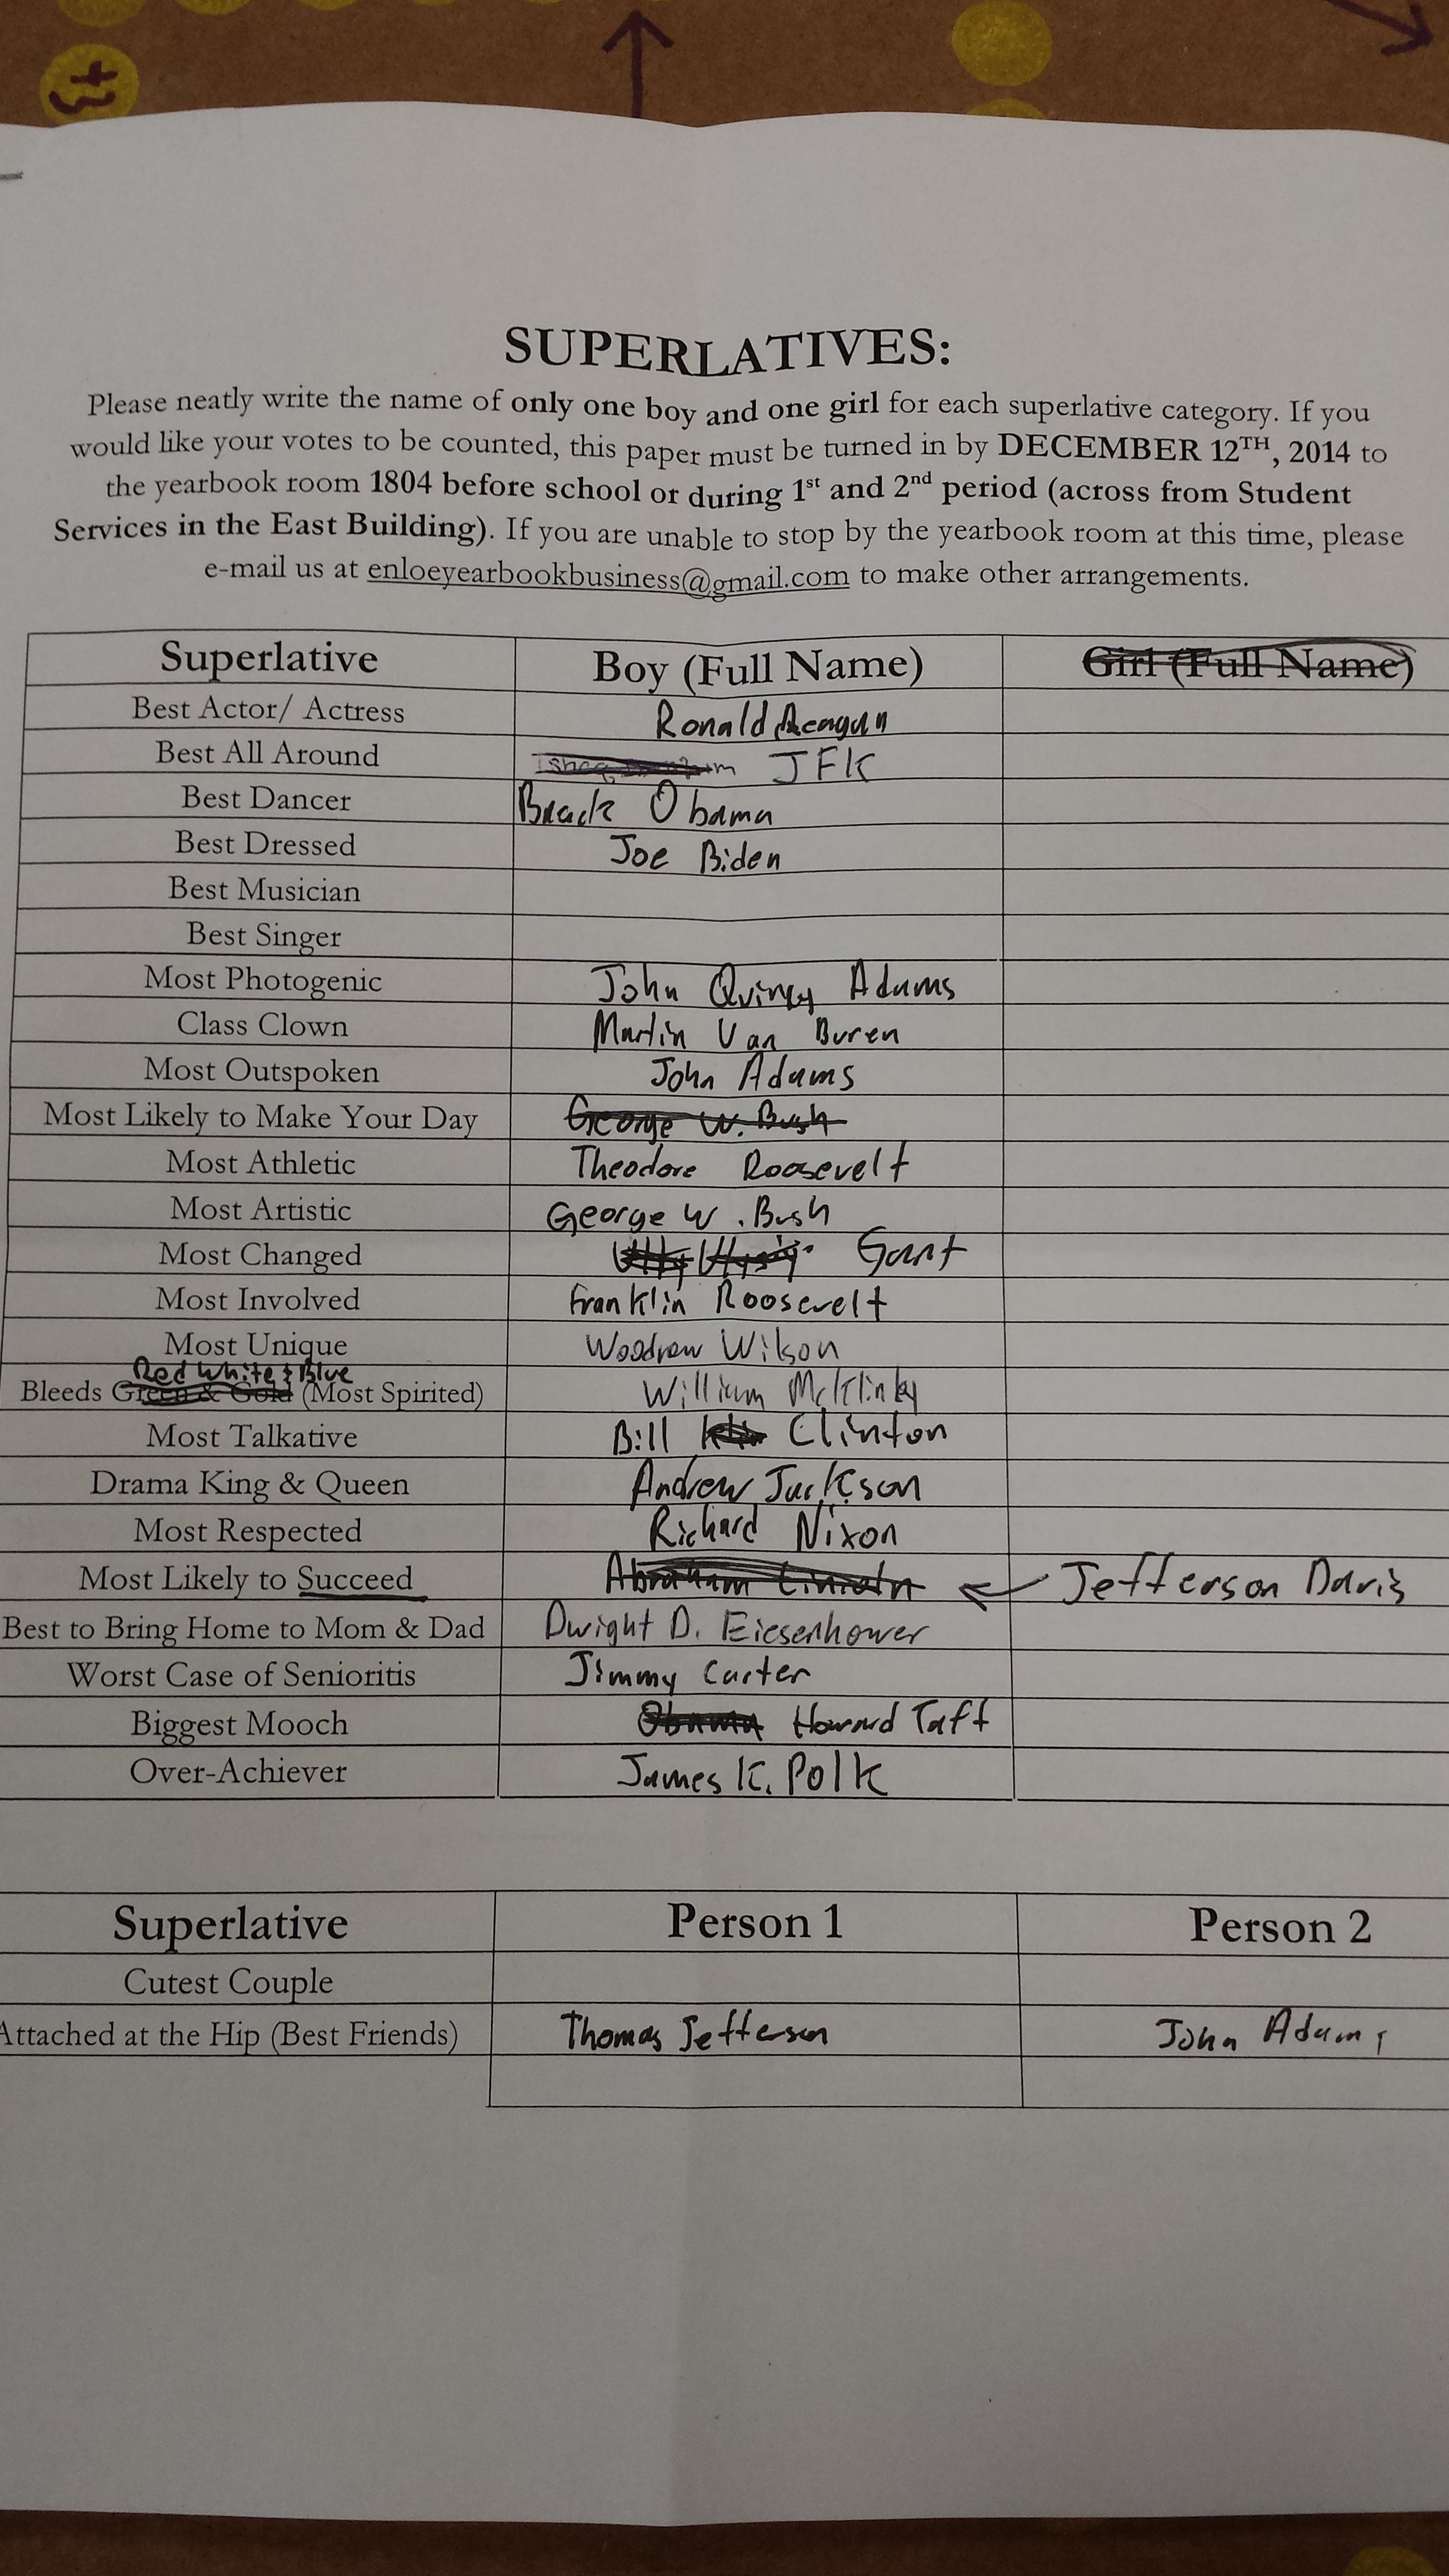 SUPERLATIVES:
Please neatly write the name of only one boy and one girl for each superlative category. If you
would like your votes to be counted, this paper must be turned in by DECEMBER 12TH, 2014 to
the yearbook room 1804 before school or during 1st and 2nd period (across from Student
Services in the East Building). If you are unable to stop by the yearbook room at this time, please
e-mail us at enloeyearbookbusiness@gmail.com to make other arrangements.
Superlative Boy (Full Name) Girl (Full Name)
Best Actor/ Actress Ronald Reagan
Best All Around JFK
Best Dancer Brack Obama
Best Dressed Joe Biden
Best Musician
Best Singer
Most Photogenic John Quincy Adams
Class Clown Martin Van Buren
Most Outspoken John Adams
Most Likely to Make Your Day George W. Bush
Most Athletic Theodore Roosevelt
Most Artistic George W. Bush
Most Changed Grant
Most Involved Franklin Roosevelt
Most Unique Woodrow Wilson
Red White & Blue
Bleeds Green & Gold (Most Spirited) William McKinley
Most Talkative Bill Clinton
Drama King & Queen Andrew Jackson
Most Respected Richard Nixon
Most Likely to Succeed Abraham Lincoln Jefferson Davis
Best to Bring Home to Mom & Dad Dwight D. Eiesenhower
Worst Case of Senioritis Jimmy Carter
Biggest Mooch Obama Howard Taft
Over-Achiever James K. Polk
Superlative Person 1 Person 2
Cutest Couple
Attached at the Hip (Best Friends) Thomas Jefferson John Adams